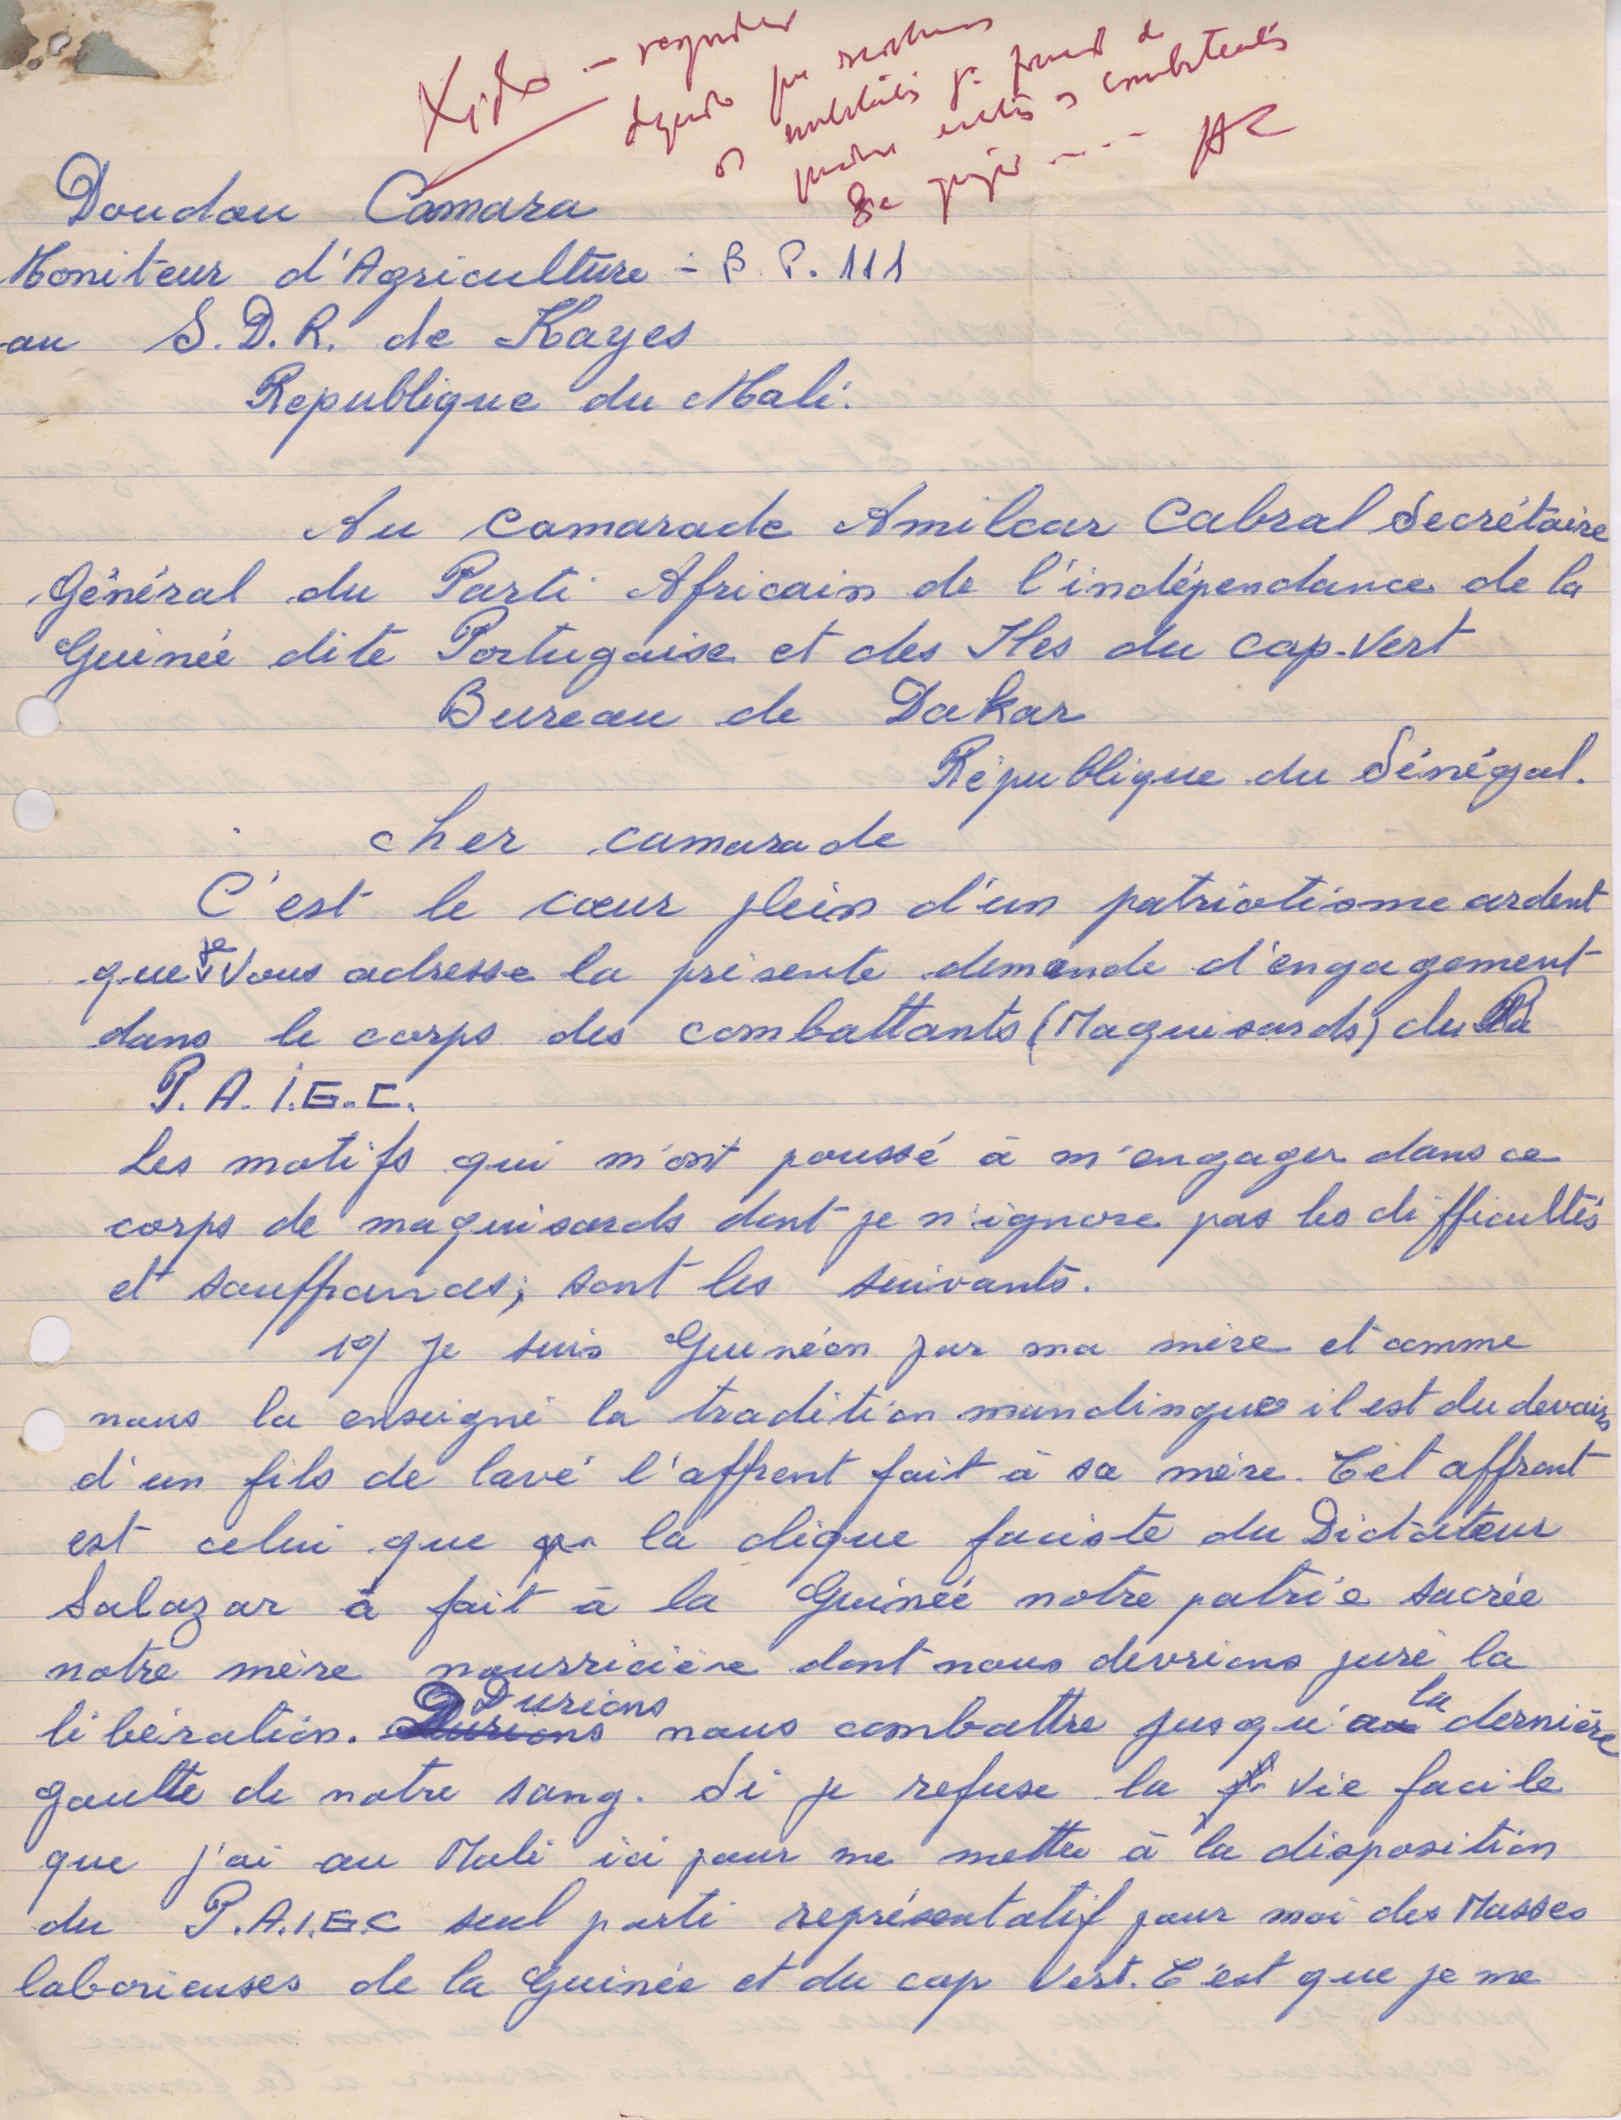 Xido - responder
dizendo que
os
os combatentes
AC
Doudou Camara
Moniteur d'Agriculture - B.P. 111
au S.D.R. de Kayes
Republique du Mali.
Au camarade Amilcar Cabral Secrétaire
Général du Parti Africain de l'indépendance de la
Guinée dite Portugaise et des Iles du Cap-Vert
Bureau de Dakar
République du Sénégal.
cher camarade
C'est le cœur plein d'un patriotisme ardent
que je Vous adresse la présente demande d'engagement
dans le corps des combattants (Maquisards) du
P.A.I.G.C.
Les motifs qui m'ont poussé à m'engager dans ce
corps de maquisards dont je n'ignore pas les difficultés
et souffrances; sont les suivants.
1º/ Je suis Guinéen par ma mère et comme
nous la enseigné la tradition mandingue il est du devoir
d'un fils de lavé l'affront fait à sa mère. Cet affront
est celui que la clique faciste du Dictateur
Salazar à fait à la Guinée notre patrie sacrée
notre mère nourricière dont nous devrions juré la
libération. Durions Durions nous combattre jusqu'au la dernière
goutte de notre sang. Si je refuse la vie facile
que j'ai au Mali ici pour me mettre à la disposition
du P.A.I.G.C seul parti représentatif pour moi des Masses
laborieuses de la Guinée et du cap Vert. C'est que je me